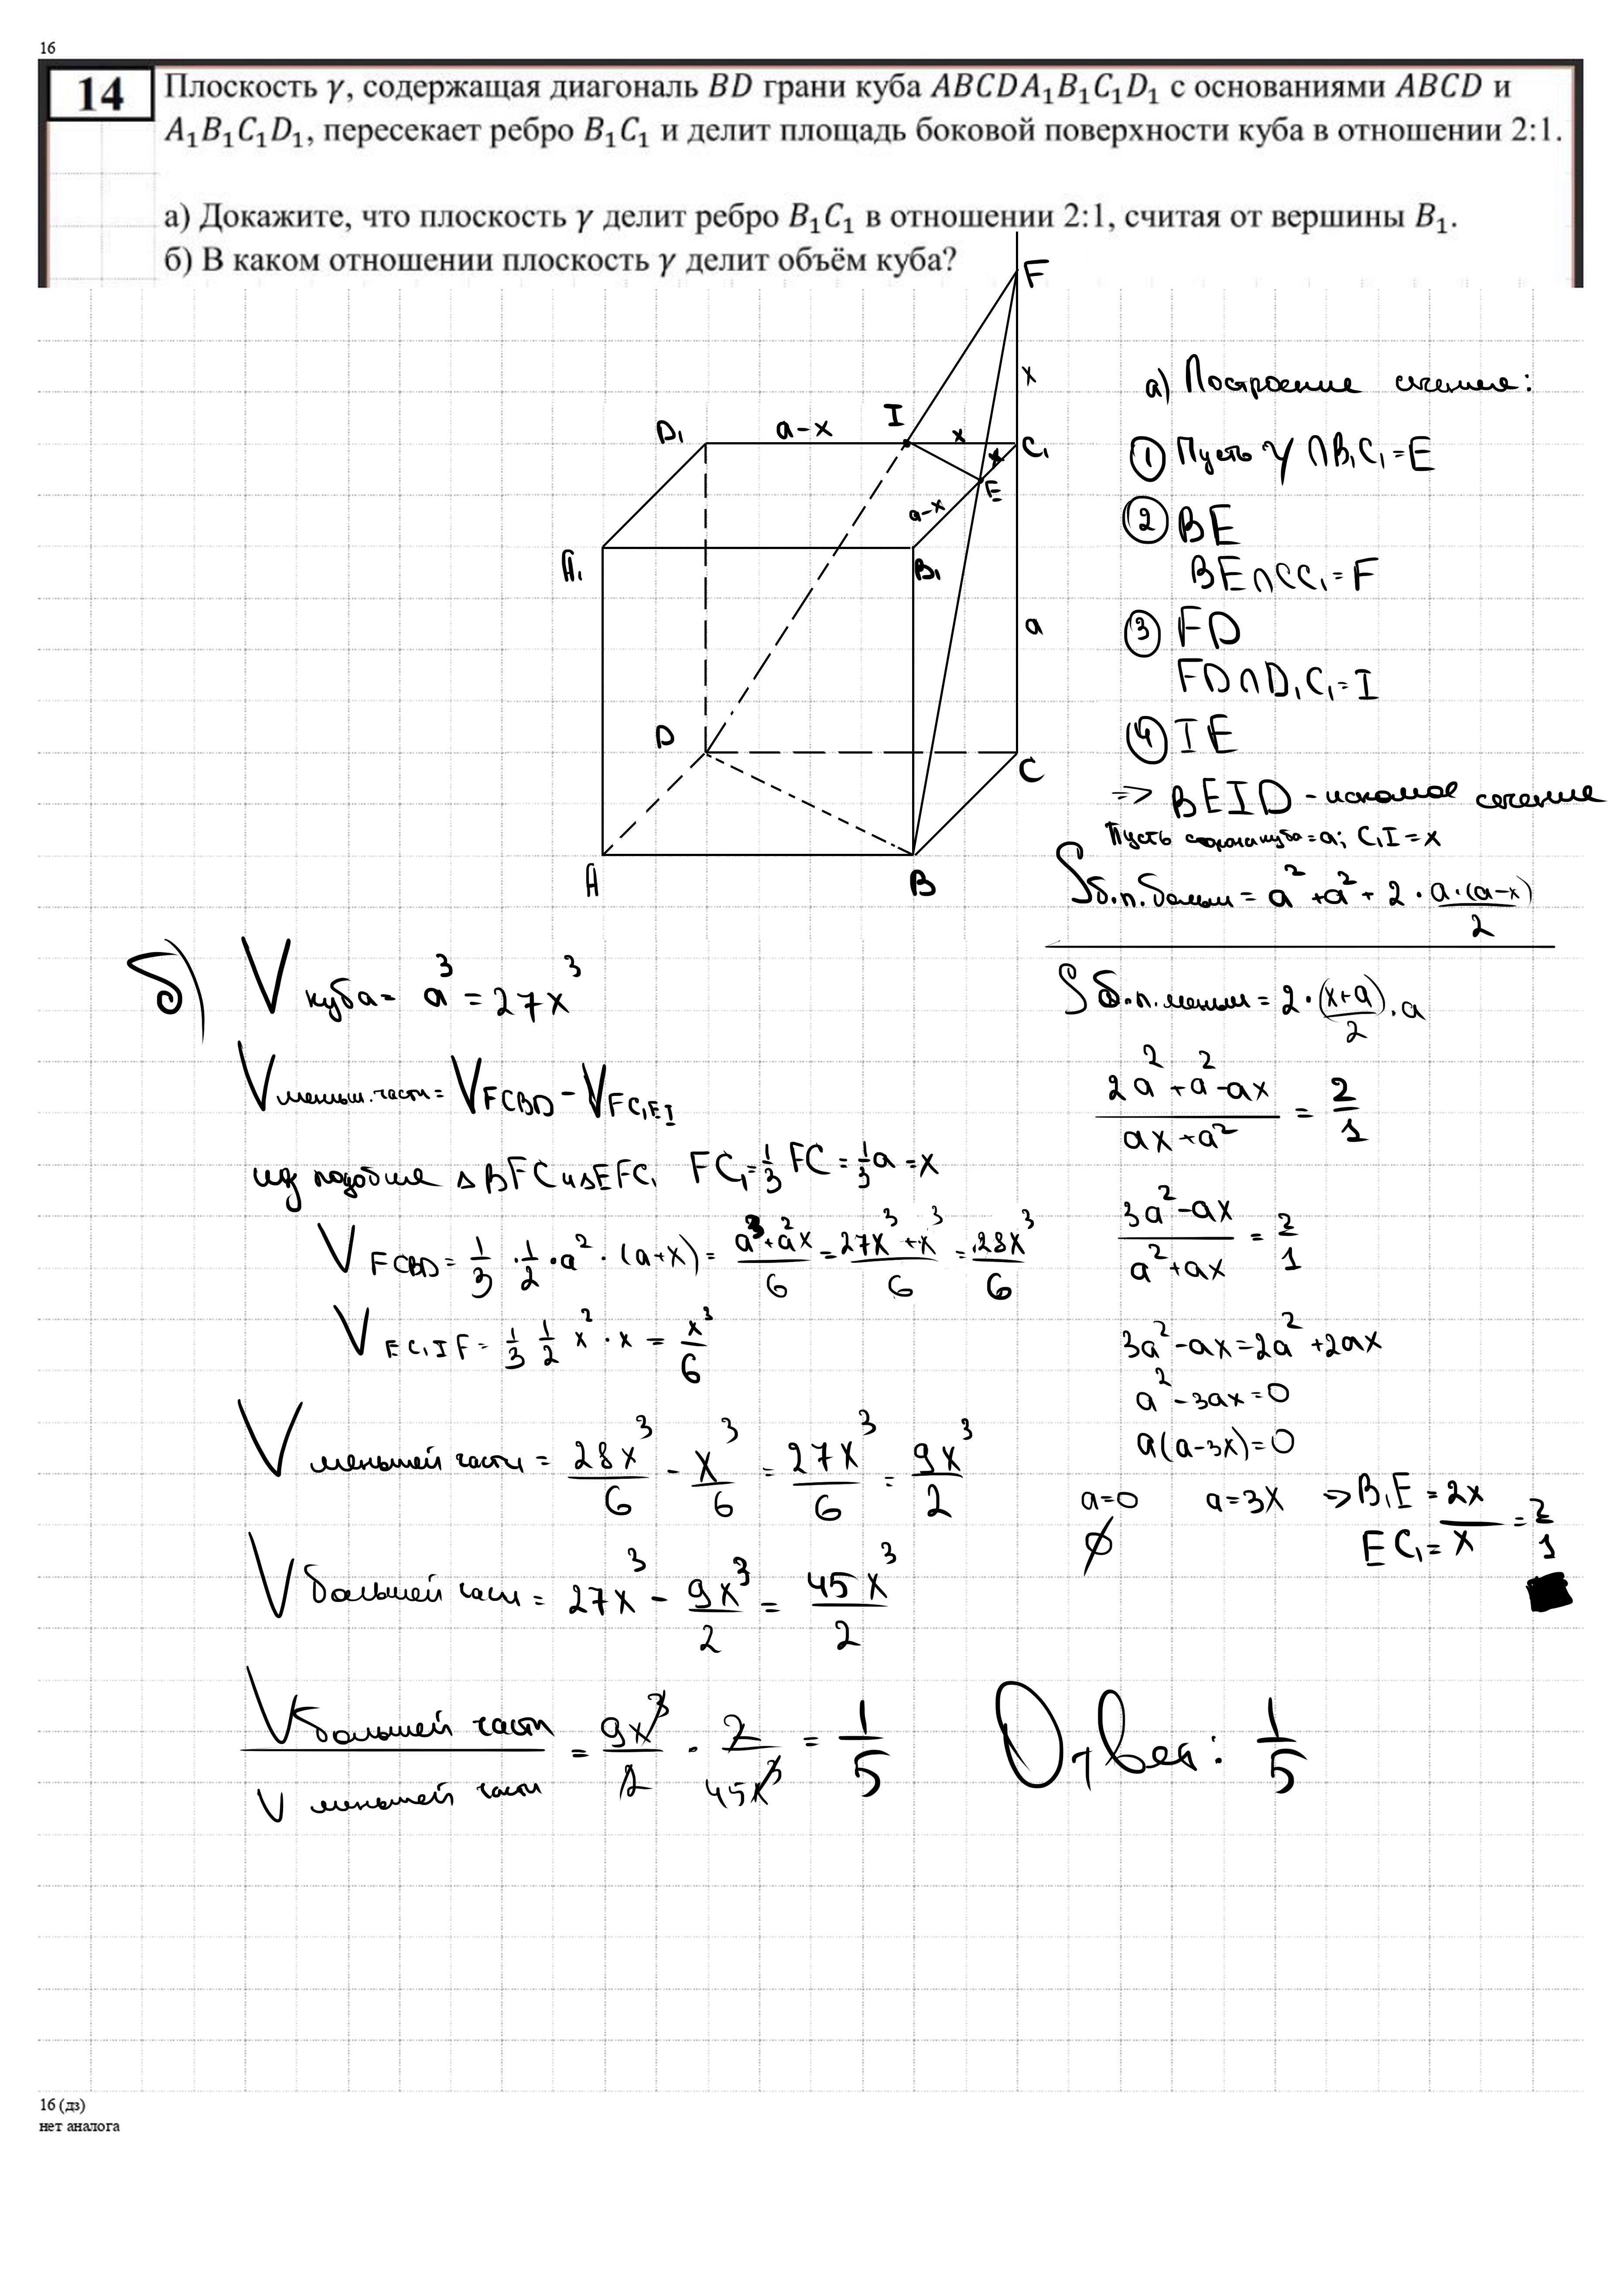 16
14
Плоскость γ, содержащая диагональ BD грани куба ABCDA₁B₁C₁D₁ с основаниями ABCD и
A₁B₁C₁D₁, пересекает ребро B₁C₁ и делит площадь боковой поверхности куба в отношении 2:1.
а) Докажите, что плоскость γ делит ребро B₁C₁ в отношении 2:1, считая от вершины B₁.
б) В каком отношении плоскость γ делит объём куба?
F
x
I
D₁ a-x x C₁
x
E
a-x
A₁ B₁
a
D
C
A B
а) Построение сечения:
① Пусть γ ∩ B₁C₁ = E
② BE
BE ∩ CC₁ = F
③ FD
FD ∩ D₁C₁ = I
④ IE
=> BEID - искомое сечение
Пусть сторона куба = a; C₁I = x
Sб.п.больш = a² + a² + 2 · a·(a-x)/2
Sб.п.меньш = 2 · (x+a)/2 · a
(2a² + a² - ax)/(ax + a²) = 2/1
(3a² - ax)/(a² + ax) = 2/1
3a² - ax = 2a² + 2ax
a² - 3ax = 0
a(a-3x) = 0
a=0 a=3x => B₁E = 2x
∅ EC₁ = x = 2/1
б) V куба = a³ = 27x³
V меньш.части = V FCBD - V FC₁EI
из подобия △BFC и △EFC₁ FC₁ = 1/3 FC = 1/3 a = x
V FCBD = 1/3 · 1/2 · a² · (a+x) = (a³ + a²x)/6 = (27x³ + x³)/6 = 28x³/6
V EC₁IF = 1/3 1/2 x² · x = x³/6
V меньшей части = 28x³/6 - x³/6 = 27x³/6 = 9x³/2
V большей части = 27x³ - 9x³/2 = 45x³/2
V большей части / V меньшей части = 9x³/2 · 2/45x³ = 1/5 Ответ: 1/5
16 (дз)
нет аналога